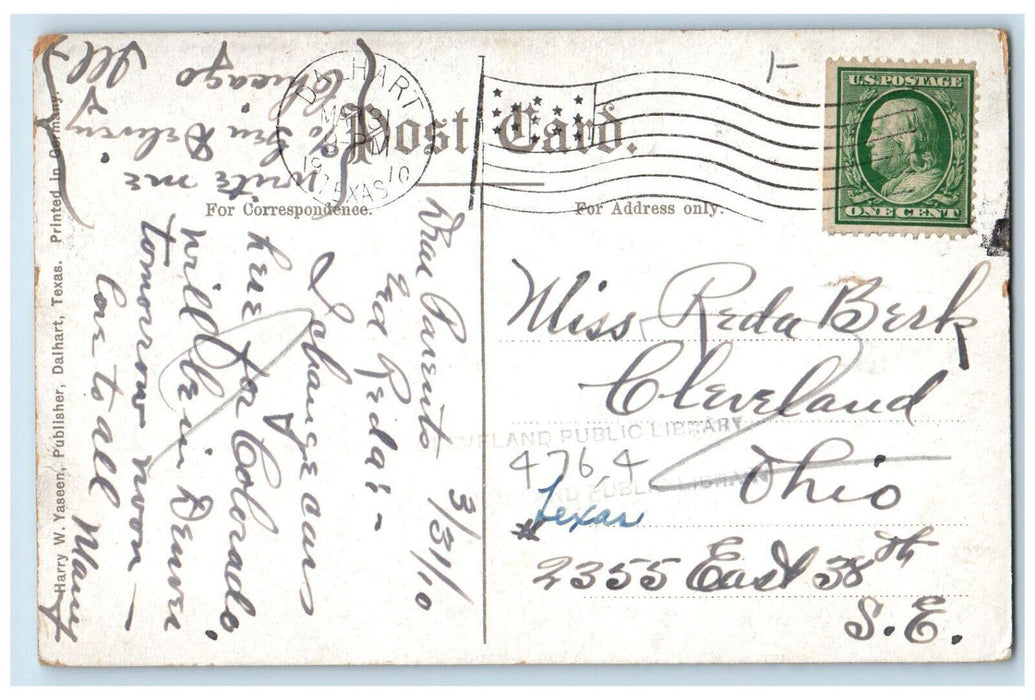 Post Card.
For Correspondence.
For Address only.
U.S. POSTAGE
ONE CENT
DALHART
TEXAS
1910
Harry W. Yaseen, Publisher, Dalhart, Texas. Printed in Germany.
3/31/10
Dear Parents
Reda:-
I change cars
here for Colorado.
will be in Denver
tomorrow noon -
love to all
write me
Delivery
Chicago
Ill
Miss Reda Berk
Cleveland
Ohio
2355 East 38th
S.E.
CLEVELAND PUBLIC LIBRARY
476.4
PUBLIC LIBRARY
Texas